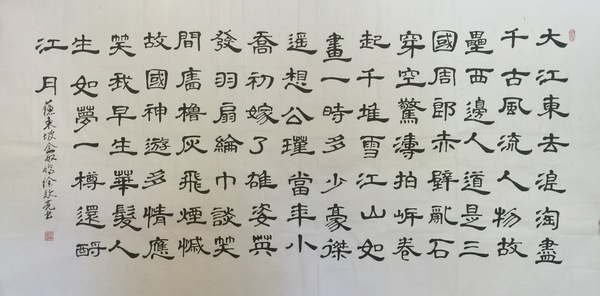 大江東去浪淘盡
千古風流人物故
壘西邊人道是三
國周郎赤壁亂石
穿空驚濤拍岸卷
起千堆雪江山如
畫一時多少豪傑
遥想公瑾當年小
喬初嫁了雄姿英
發羽扇綸巾談笑
間檣櫓灰飛煙滅
故國神遊多情應
笑我早生華髮人
生如夢一樽還酹
江月
蘇東坡念奴嬌徐